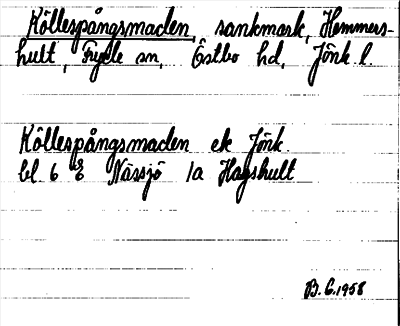 Köllespångsmaden, sankmark, Hemmers-
hult, Fryele sn, Östbo hd, Jönk l.
Köllespångsmaden ek Jönk.
bl. 6 E Nässjö 1a Hagshult
B. G. 1958